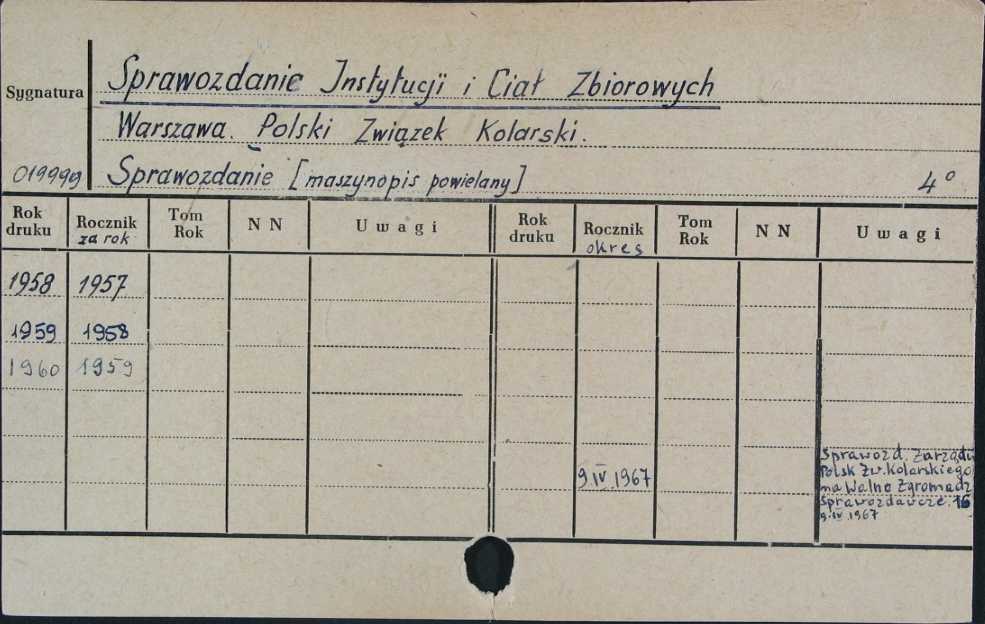 Sprawozdanie Instytucji i Ciał Zbiorowych
Sygnatura
Warszawa. Polski Związek Kolarski.
019999
Sprawozdanie [maszynopis powielany] 4°
Rok druku Rocznik za rok Tom Rok N N Uwagi Rok druku Rocznik okres Tom Rok N N Uwagi
1958 1957
1959 1958
1960 1959
9 IV. 1967
Sprawozd. Zarządu
Polsk Zw. Kolarskiego
na Walne Zgromadz
Sprawozdawcze. 16
9.IV.1967